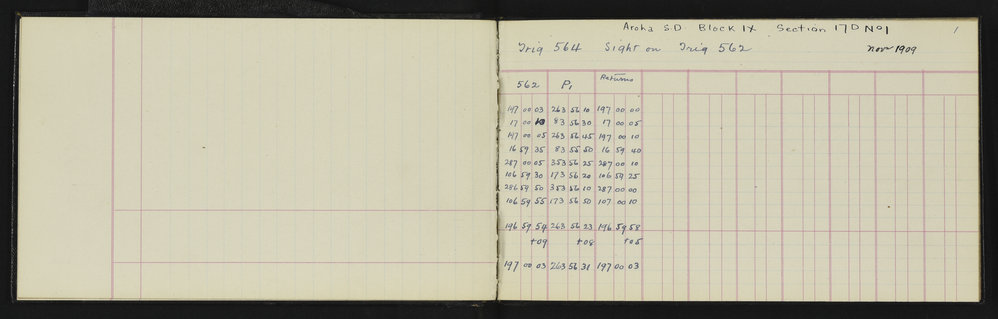 Aroha S.D Block IX Section 17D No1 1
Trig 564 Sight on Trig 562 Nov 1909
562 P1 Returns
197 00 03 263 56 10 197 00 00
17 00 10 83 56 30 17 00 05
197 00 05 263 56 45 197 00 10
16 59 35 83 55 50 16 59 40
287 00 05 353 56 25 287 00 10
106 59 30 173 56 20 106 59 25
286 59 50 353 56 10 287 00 00
106 59 55 173 56 50 107 00 10
196 59 54 263 56 23 196 59 58
+09 +08 +05
197 00 03 263 56 31 197 00 03